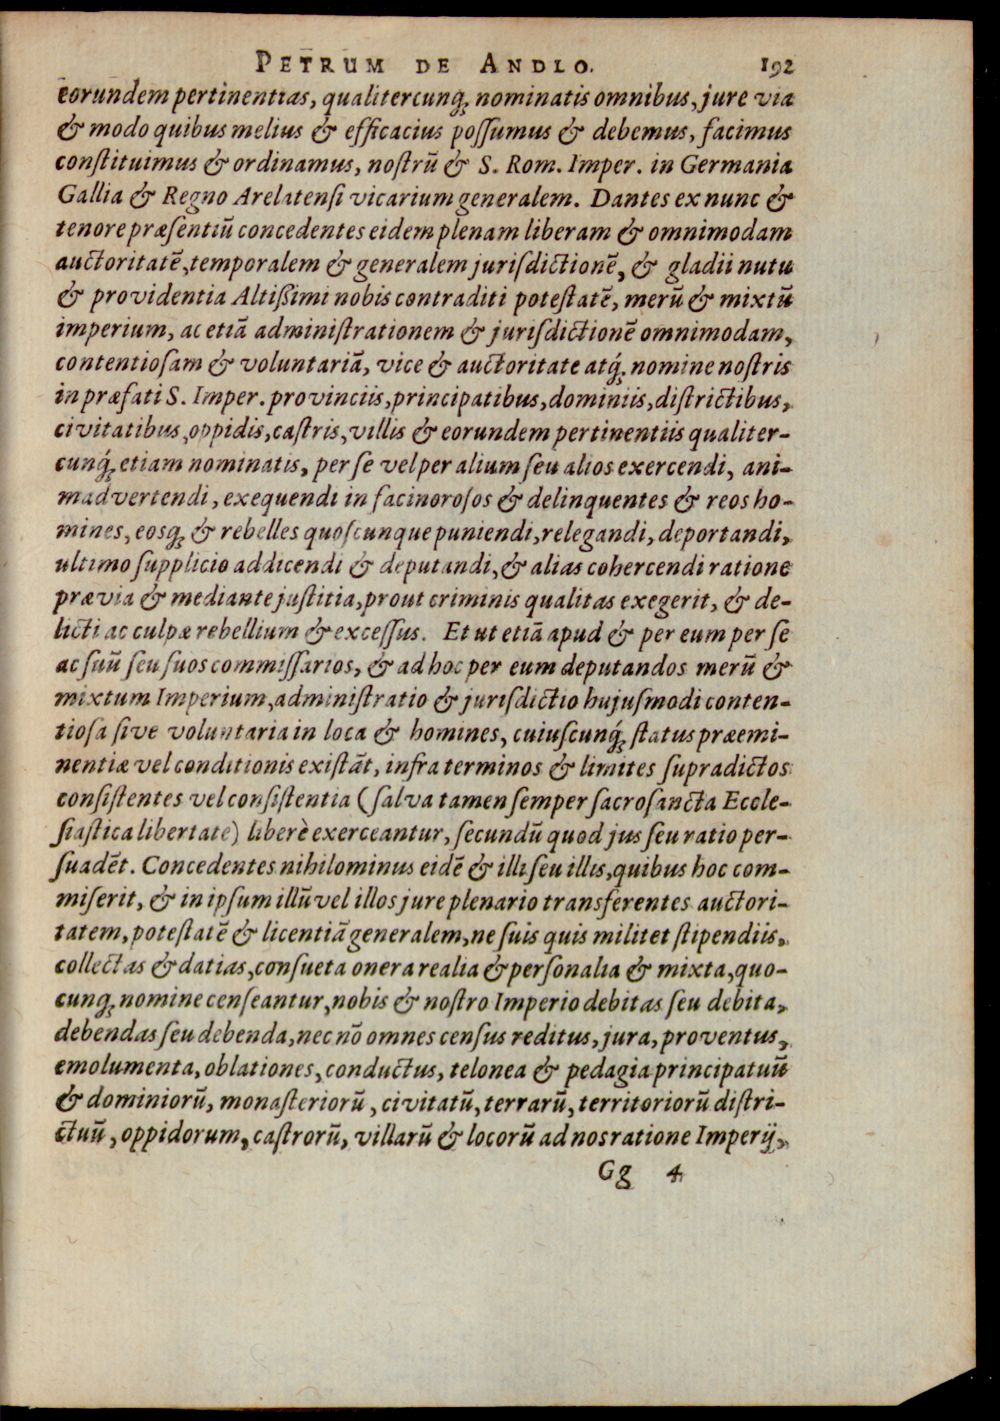 PETRUM DE ANDLO. 192
eorundem pertinentias, qualitercunq́; nominatis omnibus, jure via
& modo quibus melius & efficacius possumus & debemus, facimus
constituimus & ordinamus, nostrū & S. Rom. Imper. in Germania
Gallia & Regno Arelatensi vicarium generalem. Dantes ex nunc &
tenore præsentiū concedentes eidem plenam liberam & omnimodam
auctoritatē, temporalem & generalem jurisdictionē, & gladii nutu
& providentia Altißimi nobis contraditi potestatē, merū & mixtū
imperium, ac etiā administrationem & jurisdictionē omnimodam,
contentiosam & voluntariā, vice & auctoritate atq́; nomine nostris
in præfati S. Imper. provinciis, principatibus, dominiis, districtibus,
civitatibus, oppidis, castris, villis & eorundem pertinentiis qualiter-
cunq́; etiam nominatis, per se vel per alium seu alios exercendi, ani-
madvertendi, exequendi in facinorosos & delinquentes & reos ho-
mines, eosq́; & rebelles quoscunque puniendi, relegandi, deportandi,
ultimo supplicio addicendi & deputandi, & alias cohercendi ratione
prævia & mediante justitia, prout criminis qualitas exegerit, & de-
licti ac culpæ rebellium & excessus. Et ut etiā apud & per eum per se
ac suū seu suos commissarios, & ad hoc per eum deputandos merū &
mixtum Imperium, administratio & jurisdictio hujusmodi conten-
tiosa sive voluntaria in loca & homines, cuiuscunq́; status præemi-
nentiæ vel conditionis existāt, infra terminos & limites supradictos
consistentes vel consistentia (salva tamen semper sacrosancta Eccle-
siastica libertate) liberè exerceantur, secundū quod jus seu ratio per-
suadēt. Concedentes nihilominus eidē & illi seu illis, quibus hoc com-
miserit, & in ipsum illū vel illos jure plenario transferentes auctori-
tatem, potestatē & licentiā generalem, ne suis quis militet stipendiis,
collectas & datias, consueta onera realia & personalia & mixta, quo-
cunq́; nomine censeantur, nobis & nostro Imperio debitas seu debita,
debendas seu debenda, nec nō omnes census reditus, jura, proventus,
emolumenta, oblationes, conductus, telonea & pedagia principatuū
& dominiorū, monasteriorū, civitatū, terrarū, territoriorū distri-
ctuū, oppidorum, castrorū, villarū & locorū ad nos ratione Imperij,
Gg 4